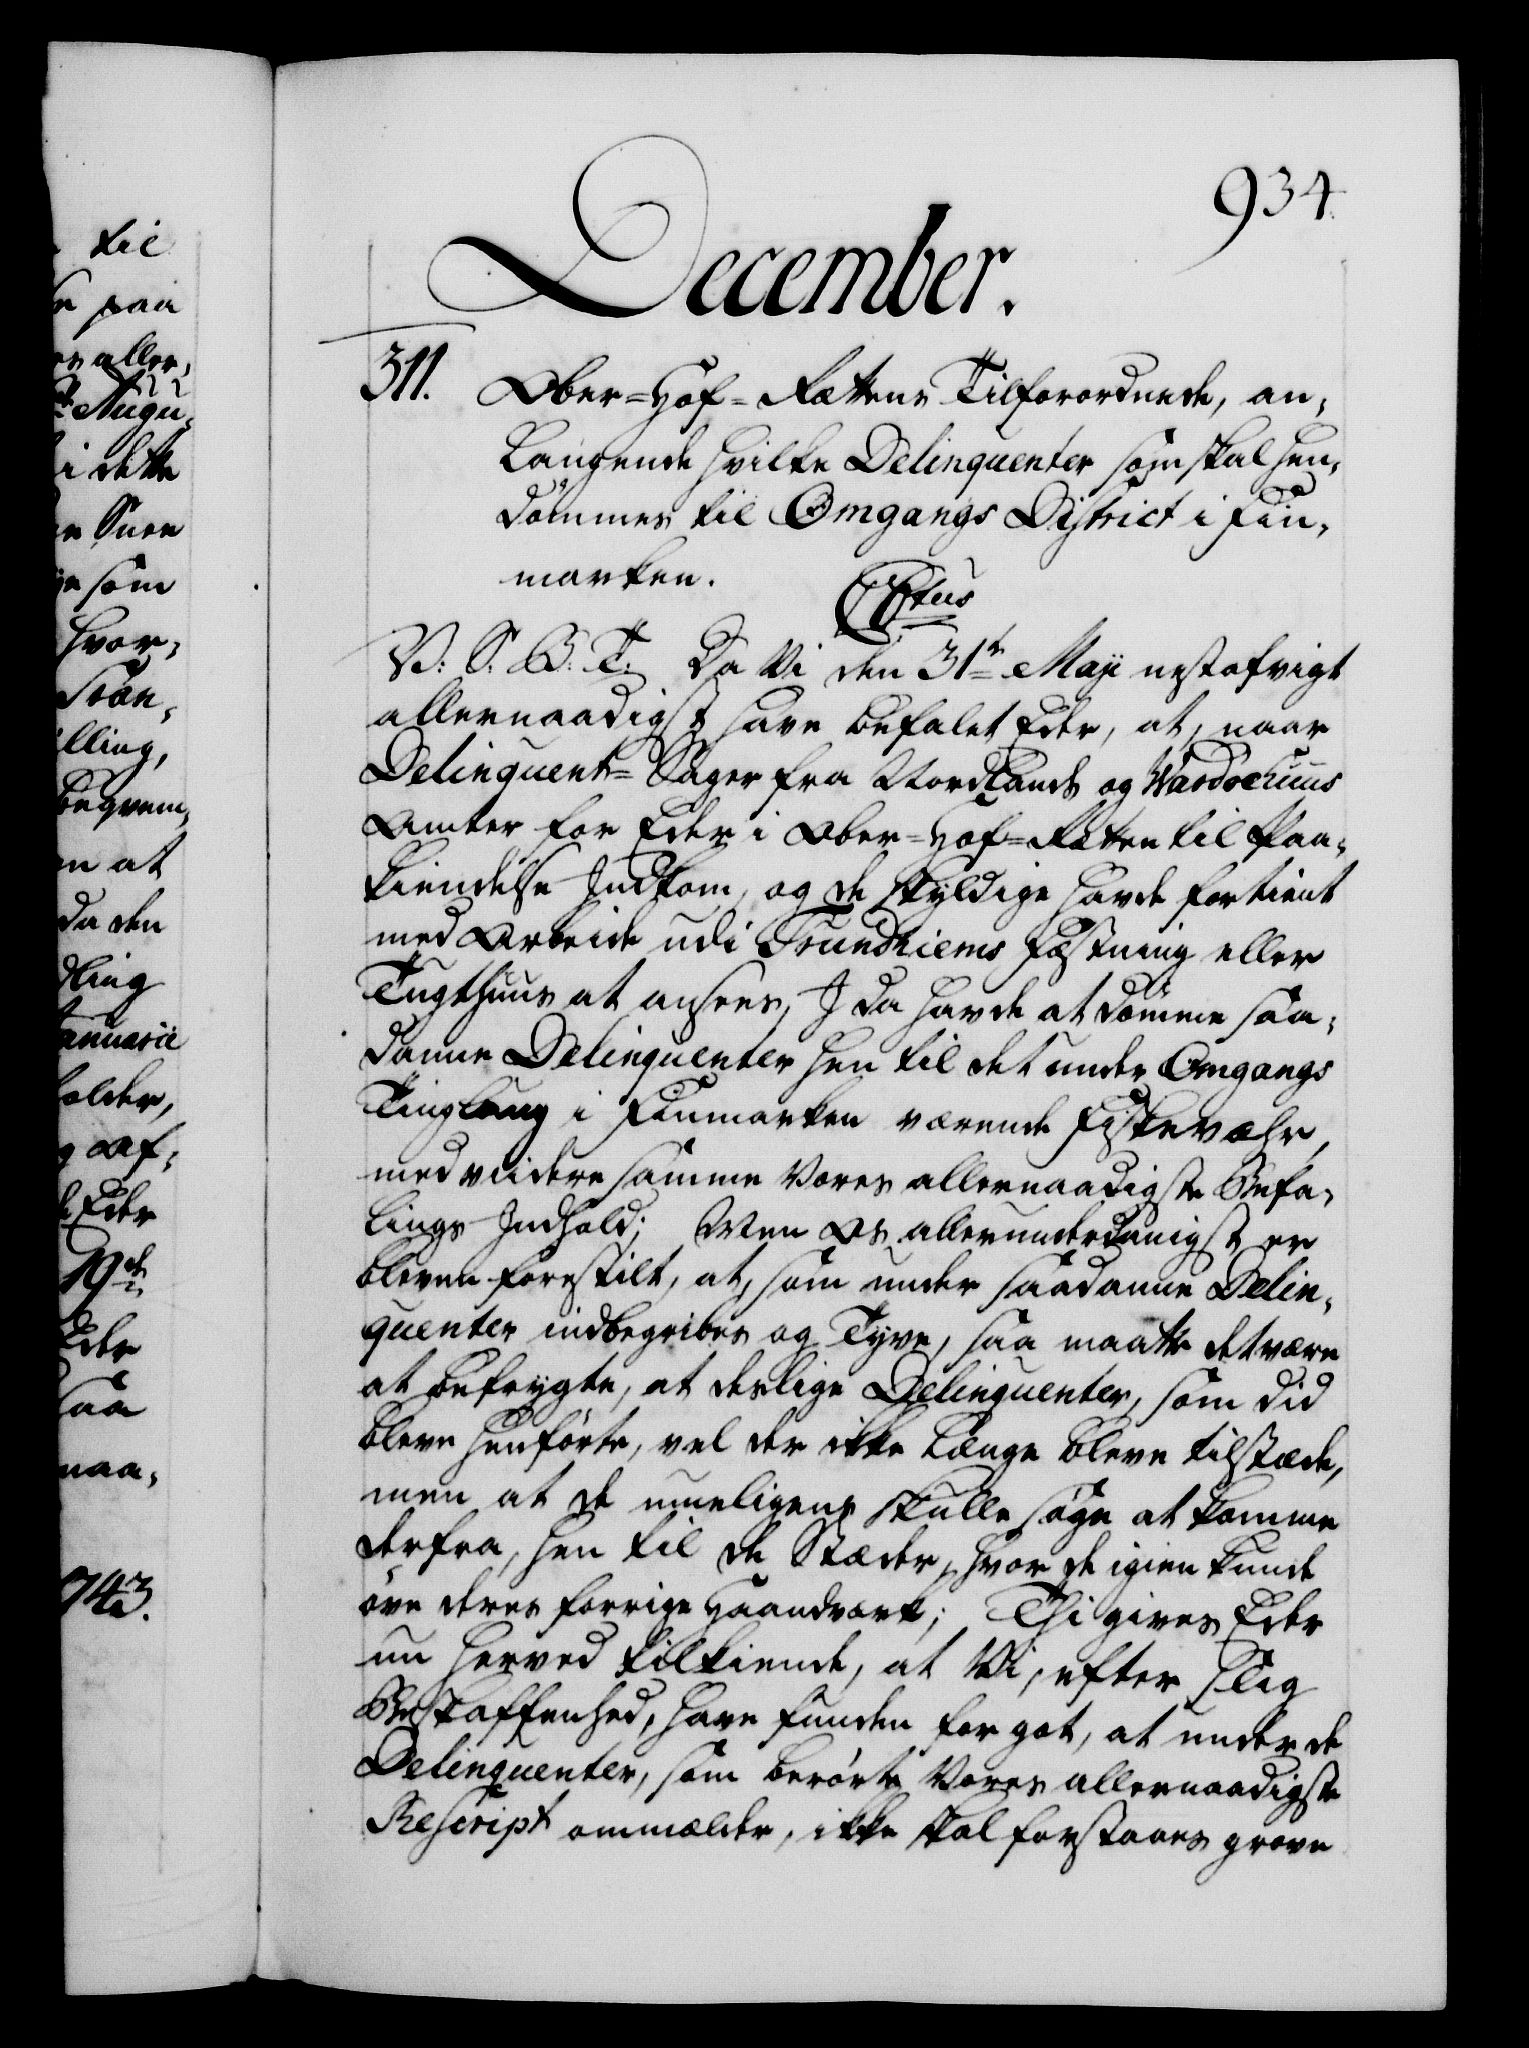 til
paa
aller,
Augu,
i dette
Snee
som
hvor,
lling,
beqvem,
at
da den
dling
Januarii
holder,
Eder
19de
Eder
saa
naa,
743.
934.
December.
311.
Ober-Hof-Rættens Tilforordnede, an,
langende hvilke Delinquenter som skal hen,
dömmes til Omgangs District i Fin,
marken.
CPtus
V: S. G: T. Da Vi den 31te Maji nestafvigt
allernaadigst have befalet Eder, at, naar
Delinquent-Sager fra Nordlands og Wardoehuus
Amter for Eder i Ober-Hof-Retten til Paa,
kiendelse Indkom, og de skyldige havde fortient
med Arbeide udi Trundhiems Fæstning eller
Tugthuus at ansees, I da havde at dömme saa,
danne Delinquenter hen til det under Omgangs
Tinglaug i Finmarken værende Fiskevæhr,
med viidere samme Vores allernaadigste Befa,
lings Indhold; Men Os allerunderdanigst er
bleven forestilt, at, som under saadanne Delin,
quenter indbegribes og Tyve, saa maatte det være
at befrygte, at deslige Delinquenter, som did
bleve henförte, vel der ikke længe bleve tilstæde,
men at de umeligens skulle söge at komme
derfra, hen til de Stæder, hvor de igien kunde
öve deres forrige Haandværk; Thi gives Eder
nu herved tilkiende, at Vi, efter slig
Beskaffenhed, have funden for got, at under de
Delinquenter, som berörte Vores allernaadigste
Rescript ommælder, ikke skal forstaaes grove